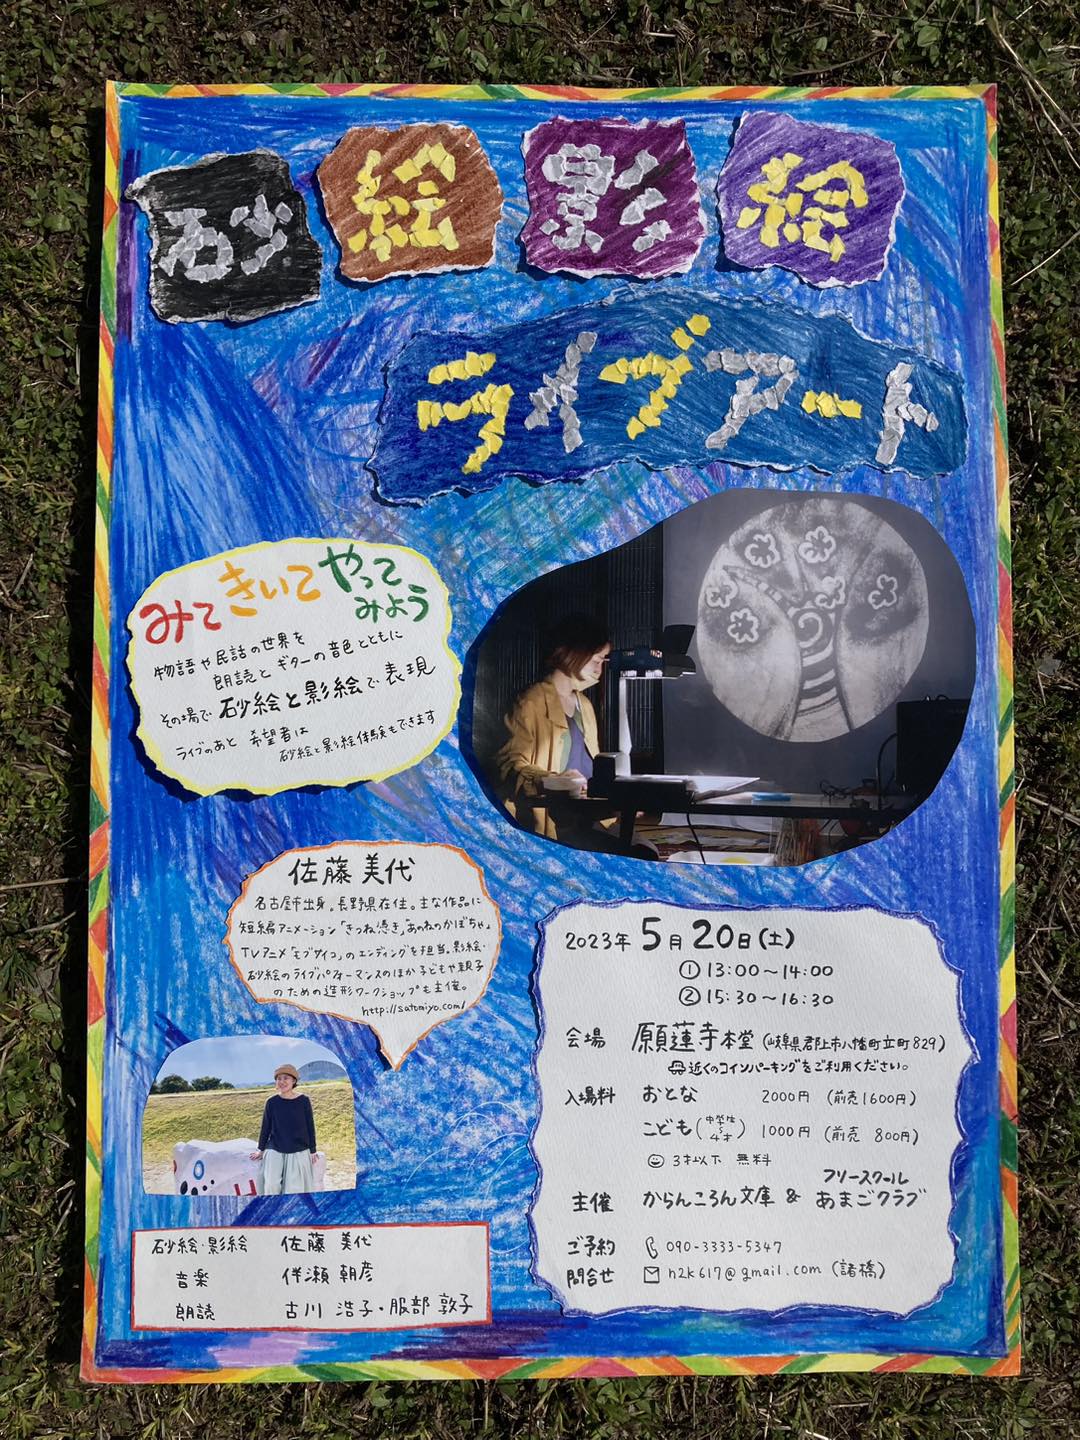 砂絵影絵
ライブアート
みてきいてやってみよう
物語や民話の世界を
朗読とギターの音色とともに
その場で砂絵と影絵で表現
ライブのあと 希望者は
砂絵と影絵体験もできます
佐藤美代
名古屋市出身。長野県在住。主な作品に
短編アニメーション「きつね憑き」「あのねのかぼちゃ」
TVアニメ「モブサイコ」のエンディングを担当。影絵・
砂絵のライブパフォーマンスのほか子どもや親子
のための造形ワークショップも主催。
http://satomiyo.com/
2023年 5月 20日(土)
①13:00～14:00
②15:30～16:30
会場 願蓮寺本堂(岐阜県郡上市八幡町立町829)
近くのコインパーキングをご利用ください。
入場料 おとな 2000円 (前売1600円)
こども(中学生～4才) 1000円 (前売 800円)
3才以下 無料
主催 からんころん文庫 & フリースクール あまごクラブ
ご予約 090-3333-5347
問合せ n2k617@gmail.com (諸橋)
砂絵・影絵 佐藤 美代
音楽 伴瀬 朝彦
朗読 古川 浩子・服部 敦子